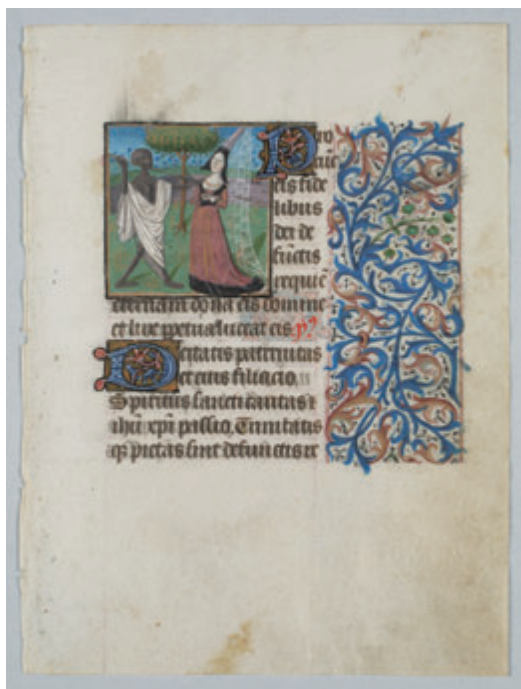 Pro
cūc
tis fide
libus
dei de
fūctis
requiē
eternam dona eis domine
et lux ppetua luceat eis
Deitatis paternitas
et eius filiacio
Spiritus sancti caritas
ihū xpi passio. Trinitatis
pietas sint defunctis re